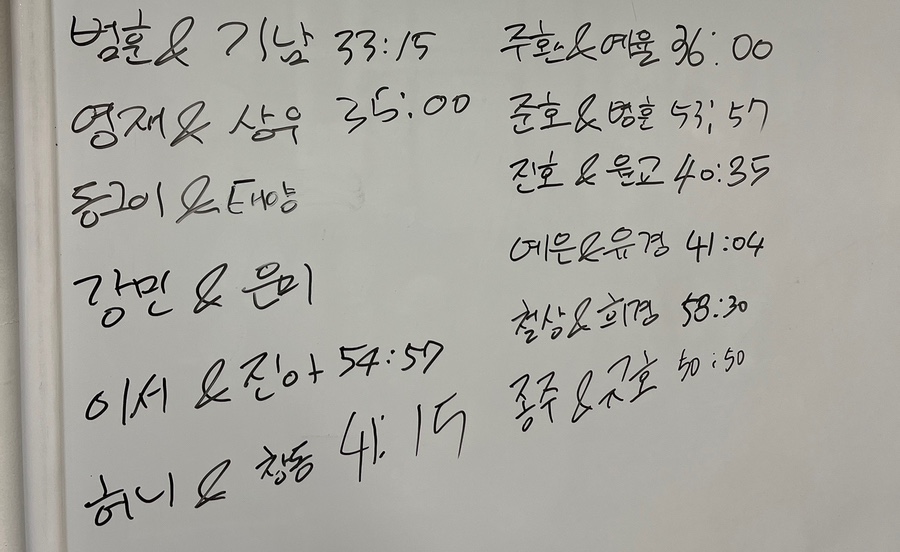 범훈 & 기남 33:15
영재 & 상우 35:00
동그이 & 태양
강민 & 은미
이서 & 진아 54:57
허니 & 창동 41:15
주환 & 예율 36:00
준호 & 병훈 53:57
진호 & 윤교 40:35
예은 & 유경 41:04
철상 & 희경 58:30
종주 & 규호 50:50